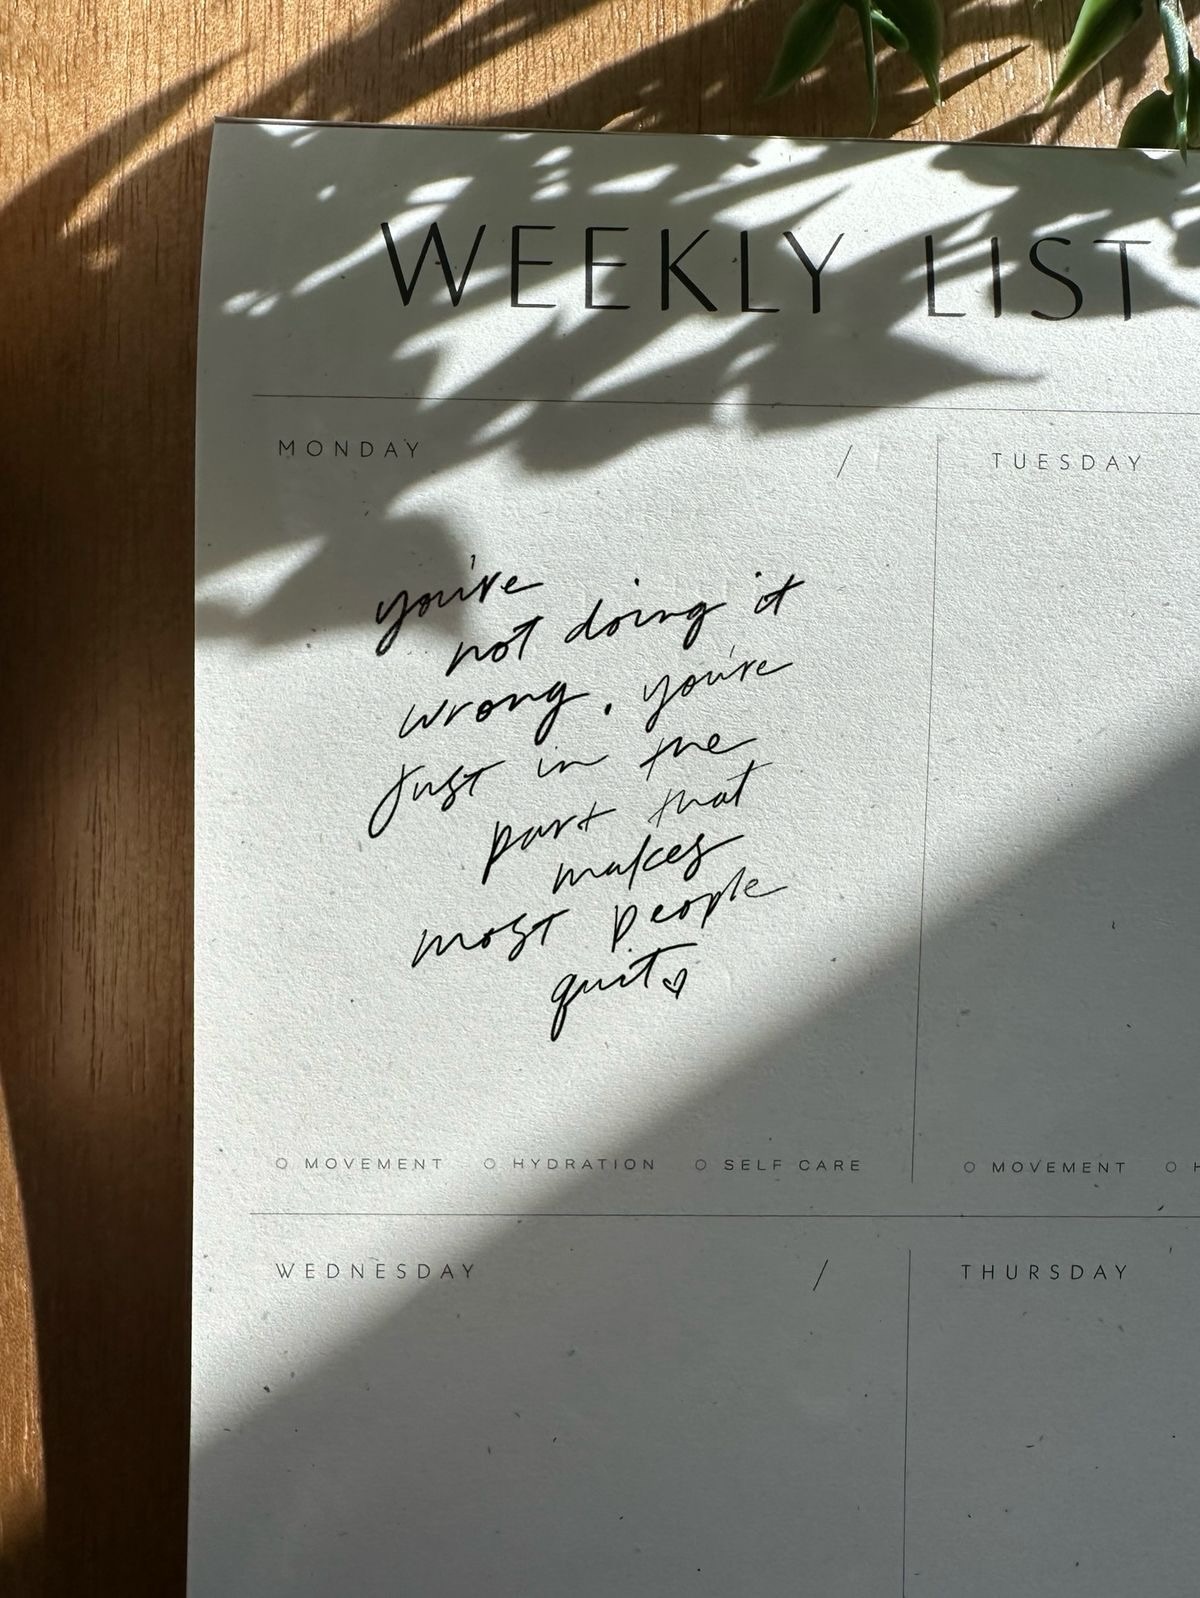 WEEKLY LIST
MONDAY /
TUESDAY
you're
not doing it
wrong. you're
just in the
part that
makes
most people
quit♡
O MOVEMENT O HYDRATION O SELF CARE
O MOVEMENT O H
WEDNESDAY /
THURSDAY